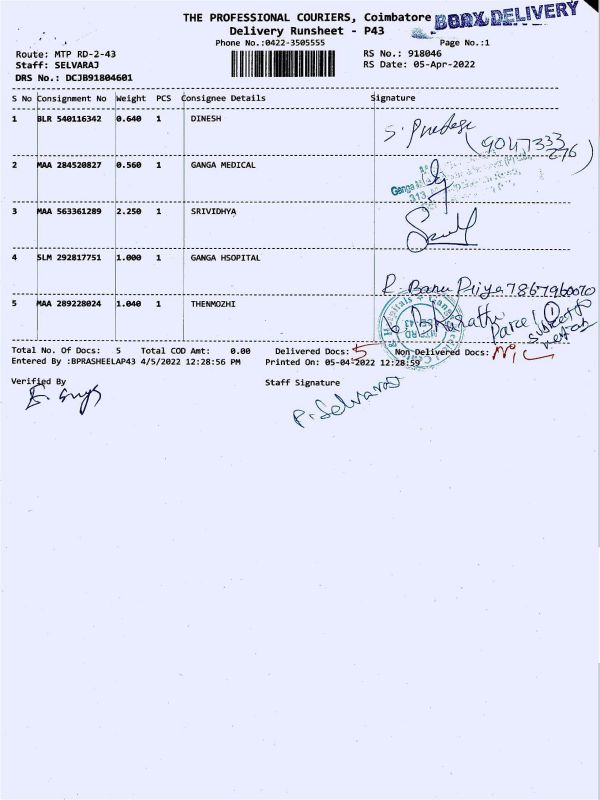 THE PROFESSIONAL COURIERS, Coimbatore
BOX DELIVERY
Delivery Runsheet - P43
Phone No.:0422-3505555
Page No.:1
Route: MTP RD-2-43
RS No.: 918046
Staff: SELVARAJ
RS Date: 05-Apr-2022
DRS No.: DCJB91804601
S No Consignment No Weight PCS Consignee Details Signature
1 BLR 540116342 0.640 1 DINESH
S.
2 MAA 284520827 0.560 1 GANGA MEDICAL
Ganga
313,
3 MAA 563361289 2.250 1 SRIVIDHYA
4 SLM 292817751 1.000 1 GANGA HSOPITAL
R. Banu Priya 7867960070
5 MAA 289228024 1.040 1 THENMOZHI
Parcel 1
Total No. Of Docs: 5 Total COD Amt: 0.00 Delivered Docs: 5 Non Delivered Docs: NIL
Entered By :BPRASHEELAP43 4/5/2022 12:28:56 PM Printed On: 05-04-2022 12:28:59
Verified By Staff Signature
P. Selvaraj